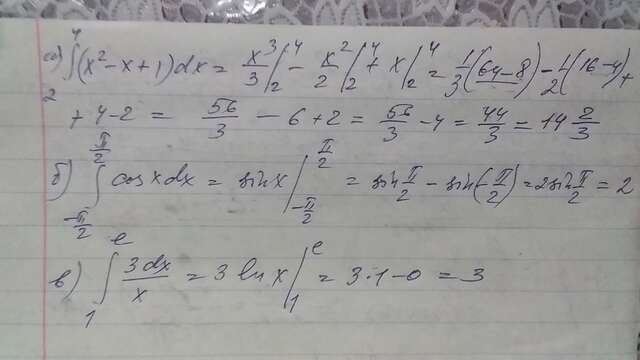 а) ∫₂⁴(x² - x + 1)dx = x³/3 |₂⁴ - x²/2 |₂⁴ + x |₂⁴ = 1/3(64 - 8) - 1/2(16 - 4) +
+ 4 - 2 = 56/3 - 6 + 2 = 56/3 - 4 = 44/3 = 14 2/3
б) ∫_{-π/2}^{π/2} cos x dx = sin x |_{-π/2}^{π/2} = sin π/2 - sin(-π/2) = 2 sin π/2 = 2
в) ∫₁ᵉ 3dx/x = 3 ln x |₁ᵉ = 3·1 - 0 = 3